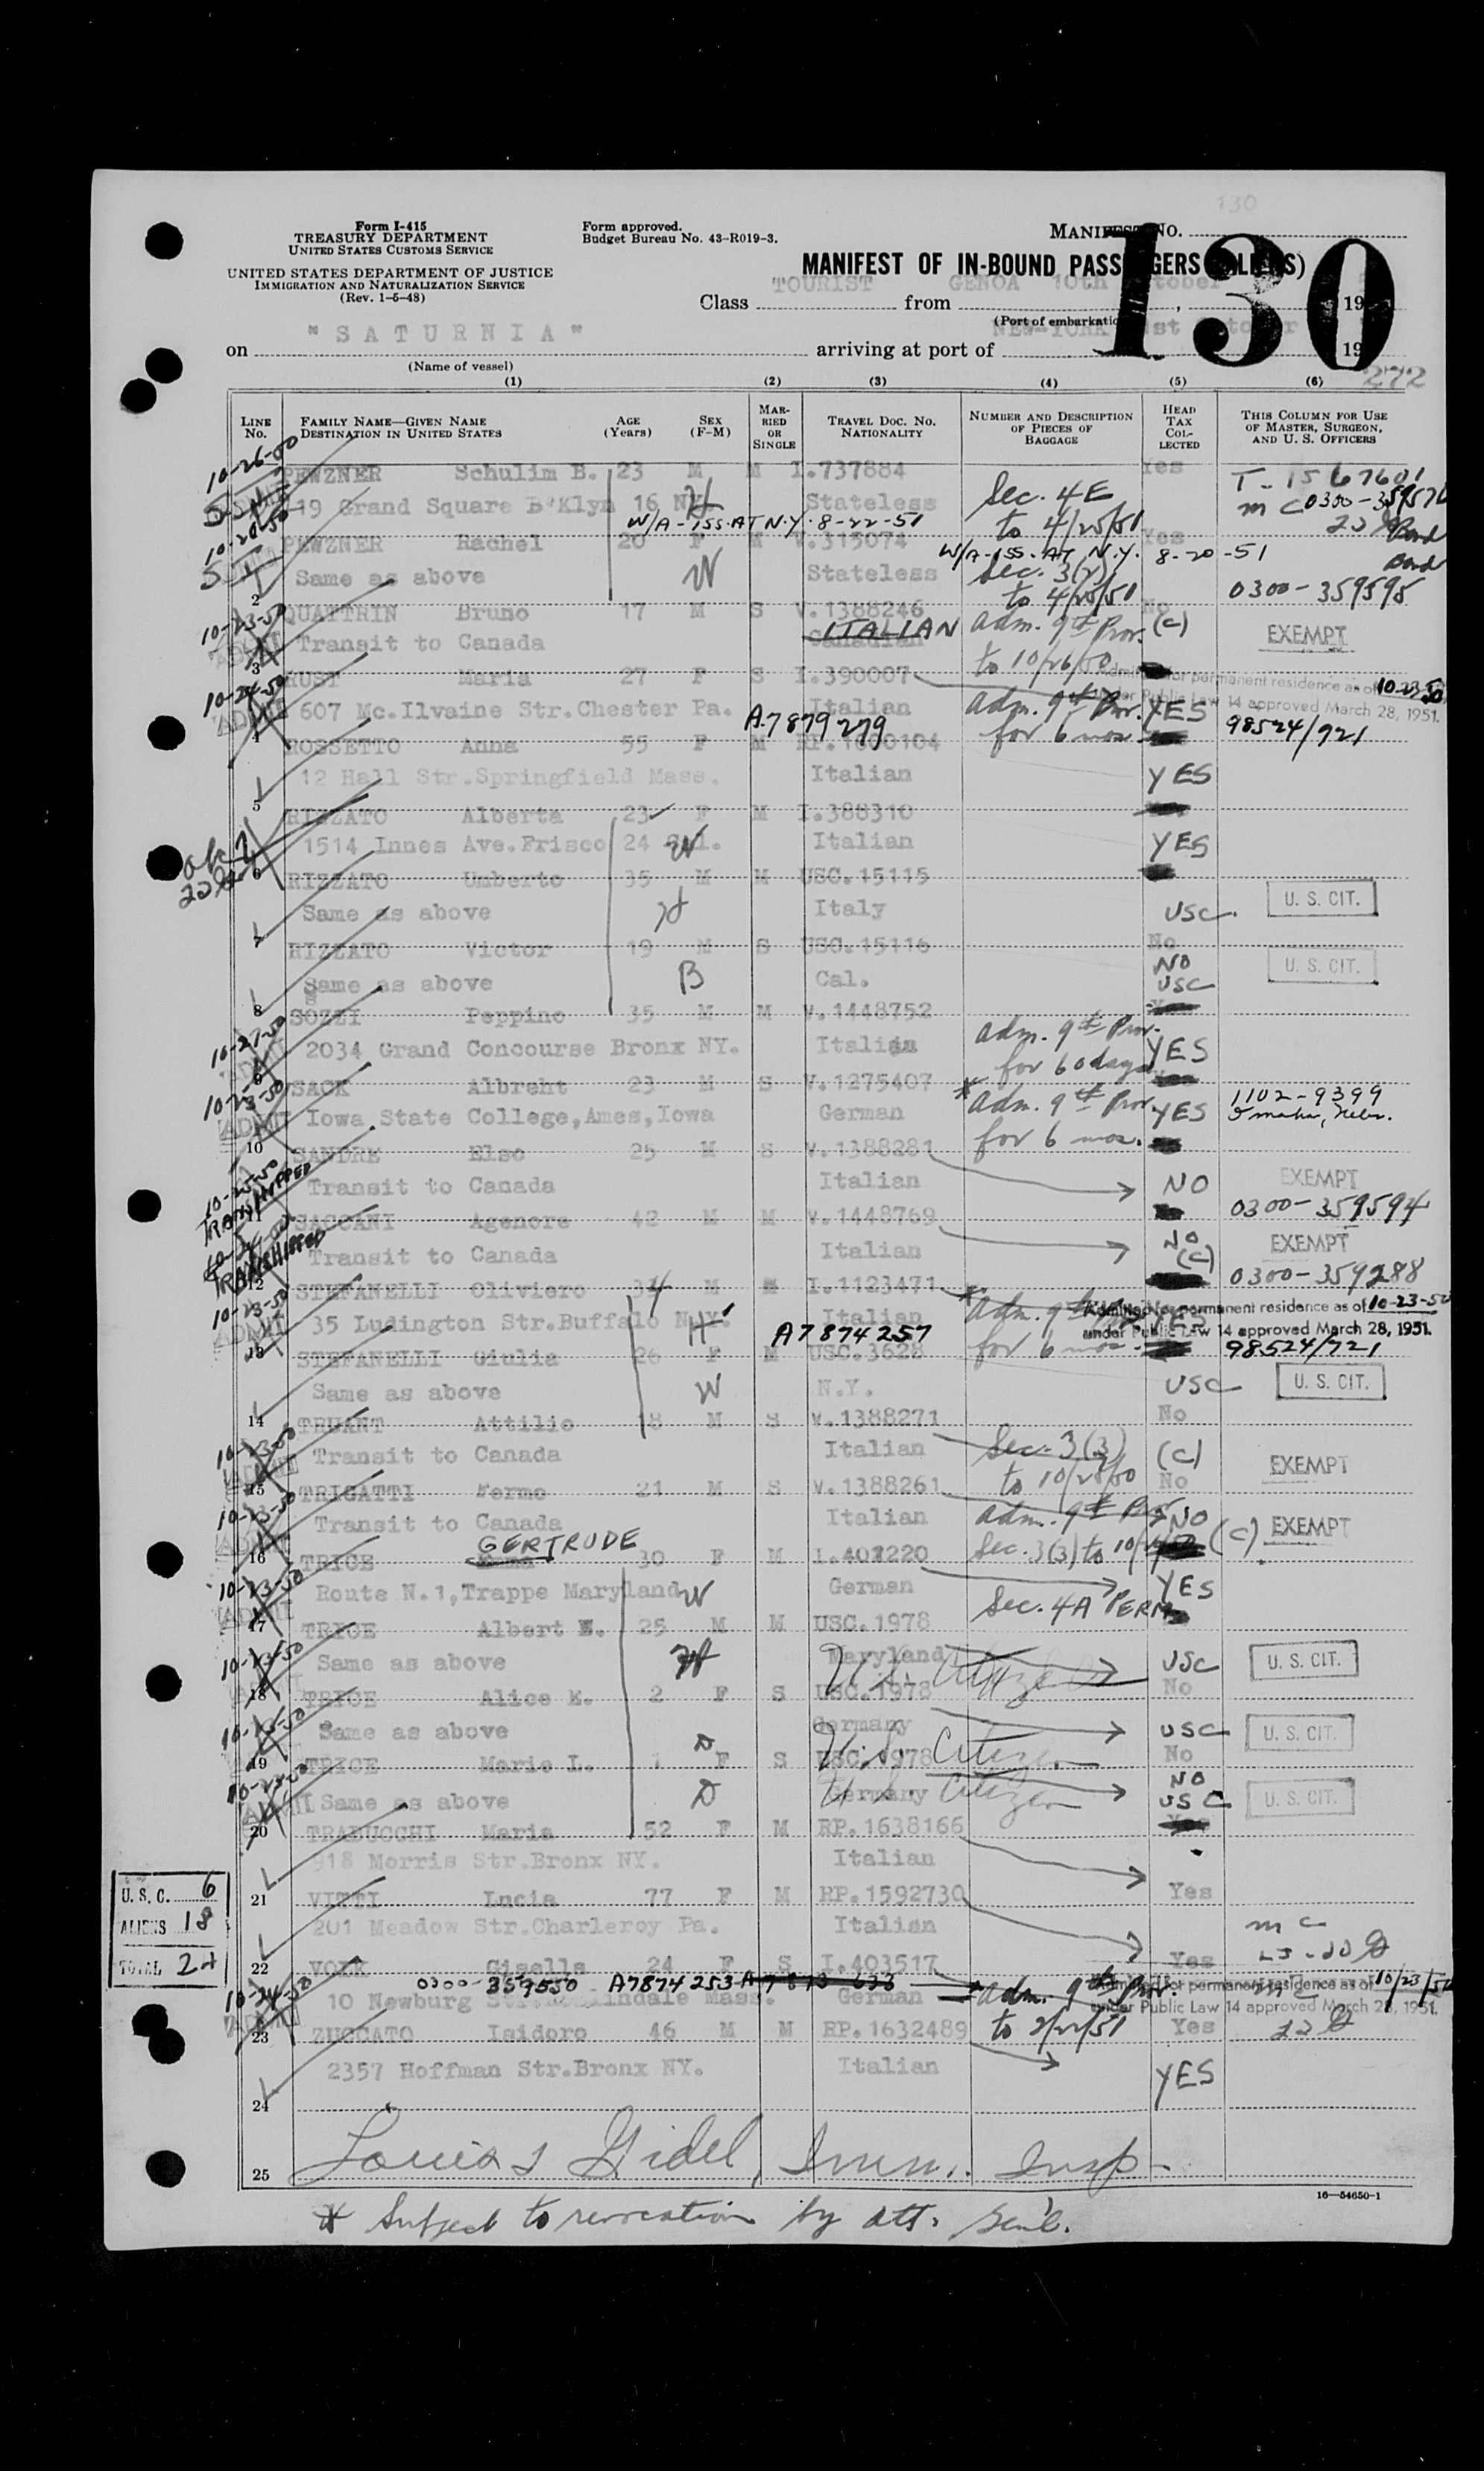 130
Form I-415
TREASURY DEPARTMENT
UNITED STATES CUSTOMS SERVICE
UNITED STATES DEPARTMENT OF JUSTICE
IMMIGRATION AND NATURALIZATION SERVICE
(Rev. 1-5-48)
Form approved.
Budget Bureau No. 43-R019-3.
MANIFEST No.
130
MANIFEST OF IN-BOUND PASSENGERS (ALIENS)
Class TOURIST from GENOA 10th October, 19
(Port of embarkation)
on "SATURNIA" arriving at port of NEW-YORK 19
(Name of vessel)
272
(1) (2) (3) (4) (5) (6)
LINE No. FAMILY NAME—GIVEN NAME DESTINATION IN UNITED STATES AGE (Years) SEX (F-M) MARRIED OR SINGLE TRAVEL DOC. NO. NATIONALITY NUMBER AND DESCRIPTION OF PIECES OF BAGGAGE HEAD TAX COLLECTED THIS COLUMN FOR USE OF MASTER, SURGEON, AND U. S. OFFICERS
10-26-50 PEWZNER Schulim B. 23 M M I.737884 Yes T-1567601
19 Grand Square B'Klyn 16 NY. H Stateless Sec. 4E to 4/25/51 mc 0300-359576 Bond
W/A-ISS. AT N.Y. 8-22-51
PEWZNER Rachel 20 F M V.315074 Yes
W/A-ISS. AT N.Y. 8-20-51 Bond
2 Same as above W Stateless Sec. 3(2) to 4/25/51 0300-359595
10-23-50 QUATTRIN Bruno 17 M S V.1388246 No
3 Transit to Canada ITALIAN Canadian adm. 9th Prov. to 10/26/50 (c) EXEMPT
10-24-50 RUST Maria 27 F S I.390007 Admitted for permanent residence as of 10-23-50
4 607 Mc.Ilvaine Str.Chester Pa. Italian adm. 9th Prov. for 6 mos. YES under Public Law 14 approved March 28, 1951.
A7879279 98524/721
ROSSETTO Anna 55 F M RP.1600104
5 12 Hall Str.Springfield Mass. Italian YES
RIZZATO Alberta 23 F M I.388310
6 1514 Innes Ave.Frisco 24 Cal. W Italian YES
RIZZATO Umberto 35 M M USC.15115
7 Same as above H Italy USC. U. S. CIT.
RIZZATO Victor 19 M S USC.15116 No
8 Same as above B Cal. NO USC U. S. CIT.
10-27-50 SOZZI Peppino 35 M M V.1448752
9 2034 Grand Concourse Bronx NY. Italian adm. 9th Prov. for 60 days YES
10-23-50 SACK Albreht 23 M S V.1275407
10 ADMIT Iowa State College,Ames,Iowa German * adm. 9th Prov. for 6 mos. YES 1102-9399 Omaha, Nebr.
10-25-50 SANDRE Elso 25 M S V.1388281
11 TRANSHIPPED Transit to Canada Italian NO EXEMPT
0300-359594
SACCANI Agenore 42 M M V.1448769
12 TRANSHIPPED Transit to Canada Italian NO (c) EXEMPT
0300-359288
10-23-50 STEFANELLI Oliviero 34 M M I.1123471 * Admitted for permanent residence as of 10-23-50
13 ADMIT 35 Ludington Str.Buffalo N.Y. H Italian adm. 9th for 6 mos. YES under Public Law 14 approved March 28, 1951.
A7874257 98524/721
STEFANELLI Giulia 26 F M USC.3628
14 Same as above W N.Y. USC U. S. CIT.
10-23-50 TRUANT Attilio 18 M S V.1388271 No
15 Transit to Canada Italian Sec. 3(3) to 10/28/50 (c) EXEMPT
10-23-50 TRIGATTI Fermo 21 M S V.1388261 No
16 ADMIT Transit to Canada Italian adm. 9th Prov. Sec. 3(3) to NO (c) EXEMPT
GERTRUDE
10-23-50 TRICE 30 F M
17 ADMIT Route N.1,Trappe Maryland W German Sec. 4A PERM YES
10-23-50 TRICE Albert 25 M M USC.1978
18 Same as above H Maryland U.S. Citizen USC U. S. CIT.
TRICE Alice E. 2 F S USC.1978 No
19 Same as above D Germany U.S. Citizen USC U. S. CIT.
10-23-50 TRICE Marie L. 1 F S USC.1978 No
20 Same as above D Germany U.S. Citizen NO USC U. S. CIT.
TRABUCCHI Maria 52 F M RP.1638166 Yes
21 918 Morris Str.Bronx NY. Italian
VITTI Lucia 77 F M RP.1592730 Yes
22 201 Meadow Str.Charleroy Pa. Italian mc
VOLK Gisella 24 F S I.403517 Yes
0300-359550 A7874253
10-24-50 10 Newburg Mass. German adm. 9th Prov. to 2/22/51 Admitted for permanent residence as of 10/23/50
under Public Law 14 approved March 28, 1951.
23 ZUCCATO Isidoro 46 M M RP.1632489 Yes
24 2357 Hoffman Str.Bronx NY. Italian YES
25 Louis J Gidel, Imm. Insp.
U. S. C. 6
ALIENS 18
TOTAL 24
16—54650-1
* Subject to revocation by Att. Gen'l.